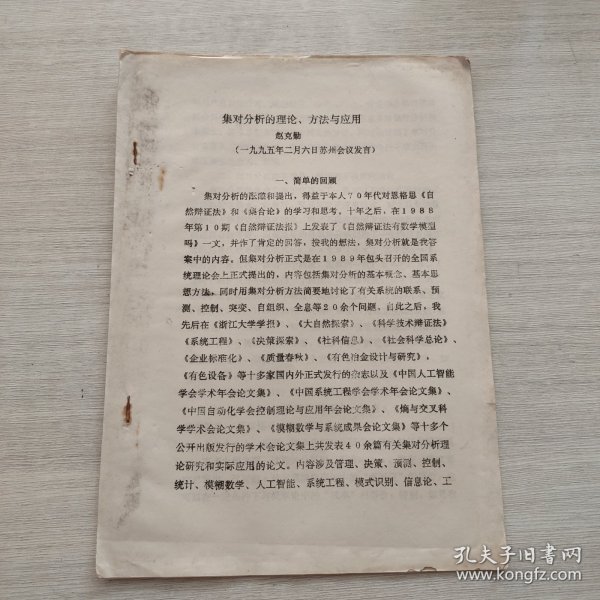 集对分析的理论、方法与应用
赵克勤
(一九九五年二月六日苏州会议发言)
一、简单的回顾
集对分析的酝酿和提出，得益于本人70年代对恩格思《自
然辩证法》和《集合论》的学习和思考。十年之后，在1988
年第10期《自然辩证法报》上发表了《自然辩证法有数学模型
吗》一文，并作了肯定的回答，按我的想法，集对分析就是我答
案中的内容。但集对分析正式是在1989年包头召开的全国系
统理论会上正式提出的，内容包括集对分析的基本概念、基本思
想方法，同时用集对分析方法简要地讨论了有关系统的联系、预
测、控制、突变、自组织、全息等20余个问题。自此之后，我
先后在《浙江大学学报》、《大自然探索》、《科学技术辩证法》
《系统工程》、《决策探索》、《社科信息》、《社会科学总论》、
《企业标准化》、《质量春秋》、《有色冶金设计与研究》，
《有色设备》等十多家国内外正式发行的杂志以及《中国人工智能
学会学术年会论文集》、《中国系统工程学会学术年会论文集》、
《中国自动化学会控制理论与应用年会论文集》、《熵与交叉科
学学术会论文集》、《模糊数学与系统成果会论文集》等十多个
公开出版发行的学术会论文集上共发表40余篇有关集对分析理
论研究和实际应用的论文。内容涉及管理、决策、预测、控制、
统计、模糊数学、人工智能、系统工程、模式识别、信息论、工
孔夫子旧书网
www.kongfz.com